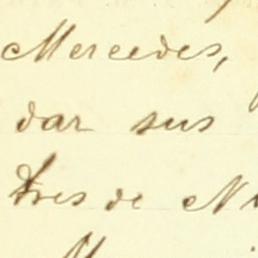 Mercedes,
dar sus
tres de Ni
M